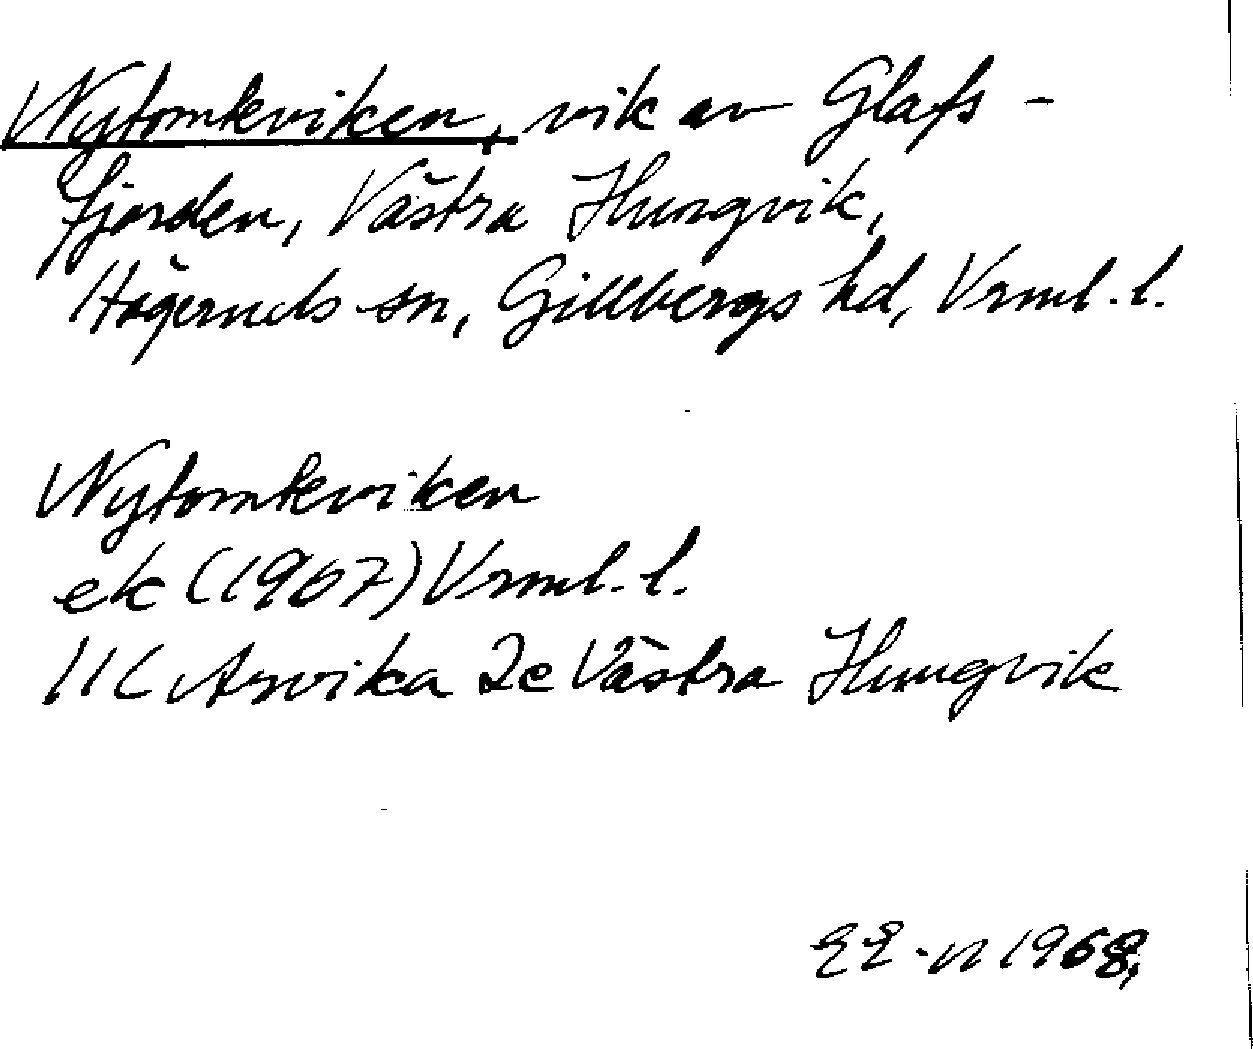 Nytomteviken, vik av Glafs-
fjorden, Västra Hungvik,
Högeruds sn, Gillbergs hd, Vrml. l.
Nytomteviken
ek (1967) Vrml. l.
11C Arvika 2e Västra Hungvik
1968